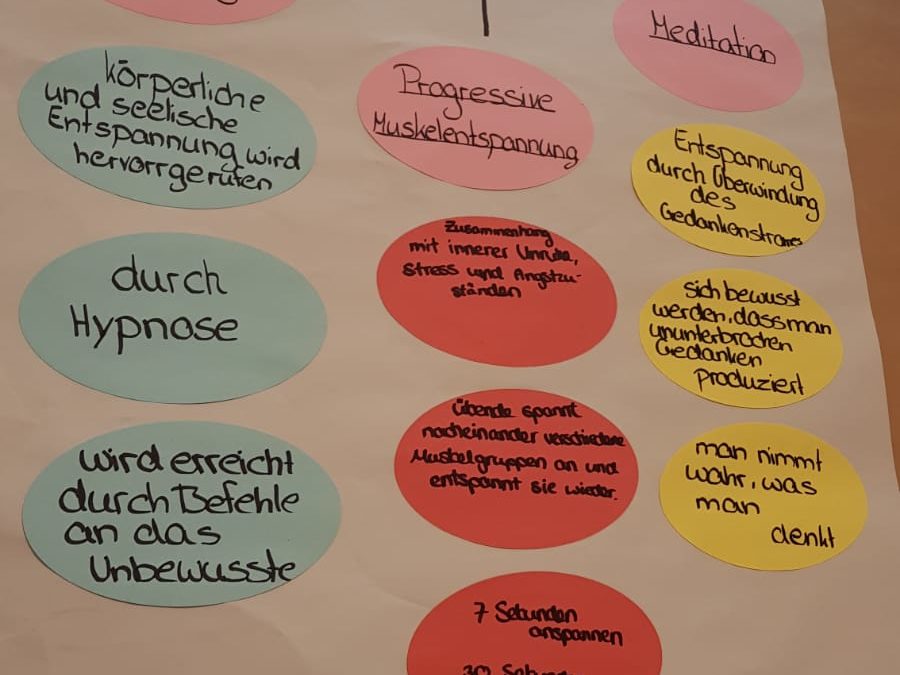 körperliche
und seelische
Entspannung wird
hervorrgerufen
durch
Hypnose
wird erreicht
durch Befehle
an das
Unbewusste
Progressive
Muskelentspannung
Zusammenhang
mit innerer Unruhe,
Stress und Angstzu-
ständen
Übende spannt
nacheinander verschiedene
Muskelgruppen an und
entspannt sie wieder.
7 Sekunden
anspannen
Meditation
Entspannung
durch Überwindung
des
Gedankenstromes
sich bewusst
werden, dass man
ununterbrochen
Gedanken
produziert
man nimmt
wahr, was
man
denkt